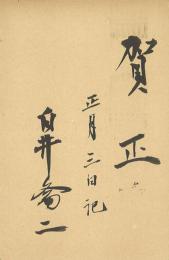 賀正
正月三日記
白井喬二